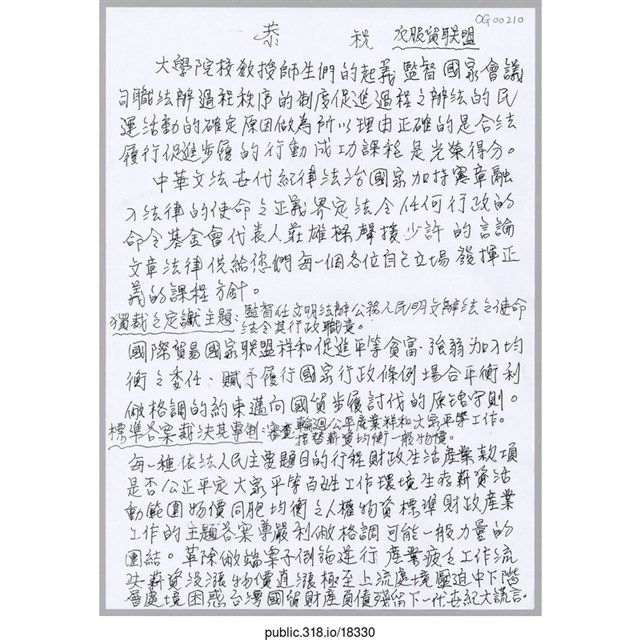 OG00210
恭 祝 反服貿联盟
大學院校教授師生們的起義監督國家會議
司職法辦過程秩序的制度促進過程之辦法的民
運活動的確定原因做為所以理由正確的是合法
履行促進步履的行動成功課程是光榮得分。
中華文法世代紀律法治國家加持憲章融
入法律的使命之正義界定法令任何行政的
命令基金會代表人莊雄樑聲援少許的言論
文章法律供給您們每一個各位自己立場發揮正
義的課程方針。
獨裁之定讞主題、監督任文明法辦公務人民明文辦法之使命
法令其行政職責。
國際貿易國家联盟祥和促進平等貧富、強弱加入均
衡之委任、賦予履行國家行政條例場合平衡利
做格調的約束邁向國貿步履討伐的原理守則。
標準答案裁決其專例:審查輪迴公平產業祥和大家平等工作。
指替薪資均衡一般物價。
每一種依法人民主要題目的行程財政生活產業款項
是否公正平定大家平等百姓工作環境生存薪資活
動範圍物價同胞均衡之人權物資標準財政產業
工作的主題答案尊嚴利做格調可能一般力量的
團結。革除做端案子倒施進行產業疲乏工作流
失薪資沒漲物價直漲極至上流處境壓迫中下階
層處境困惑台灣國貿財產負債殘留下一代世紀大謊言。
public.318.io/18330